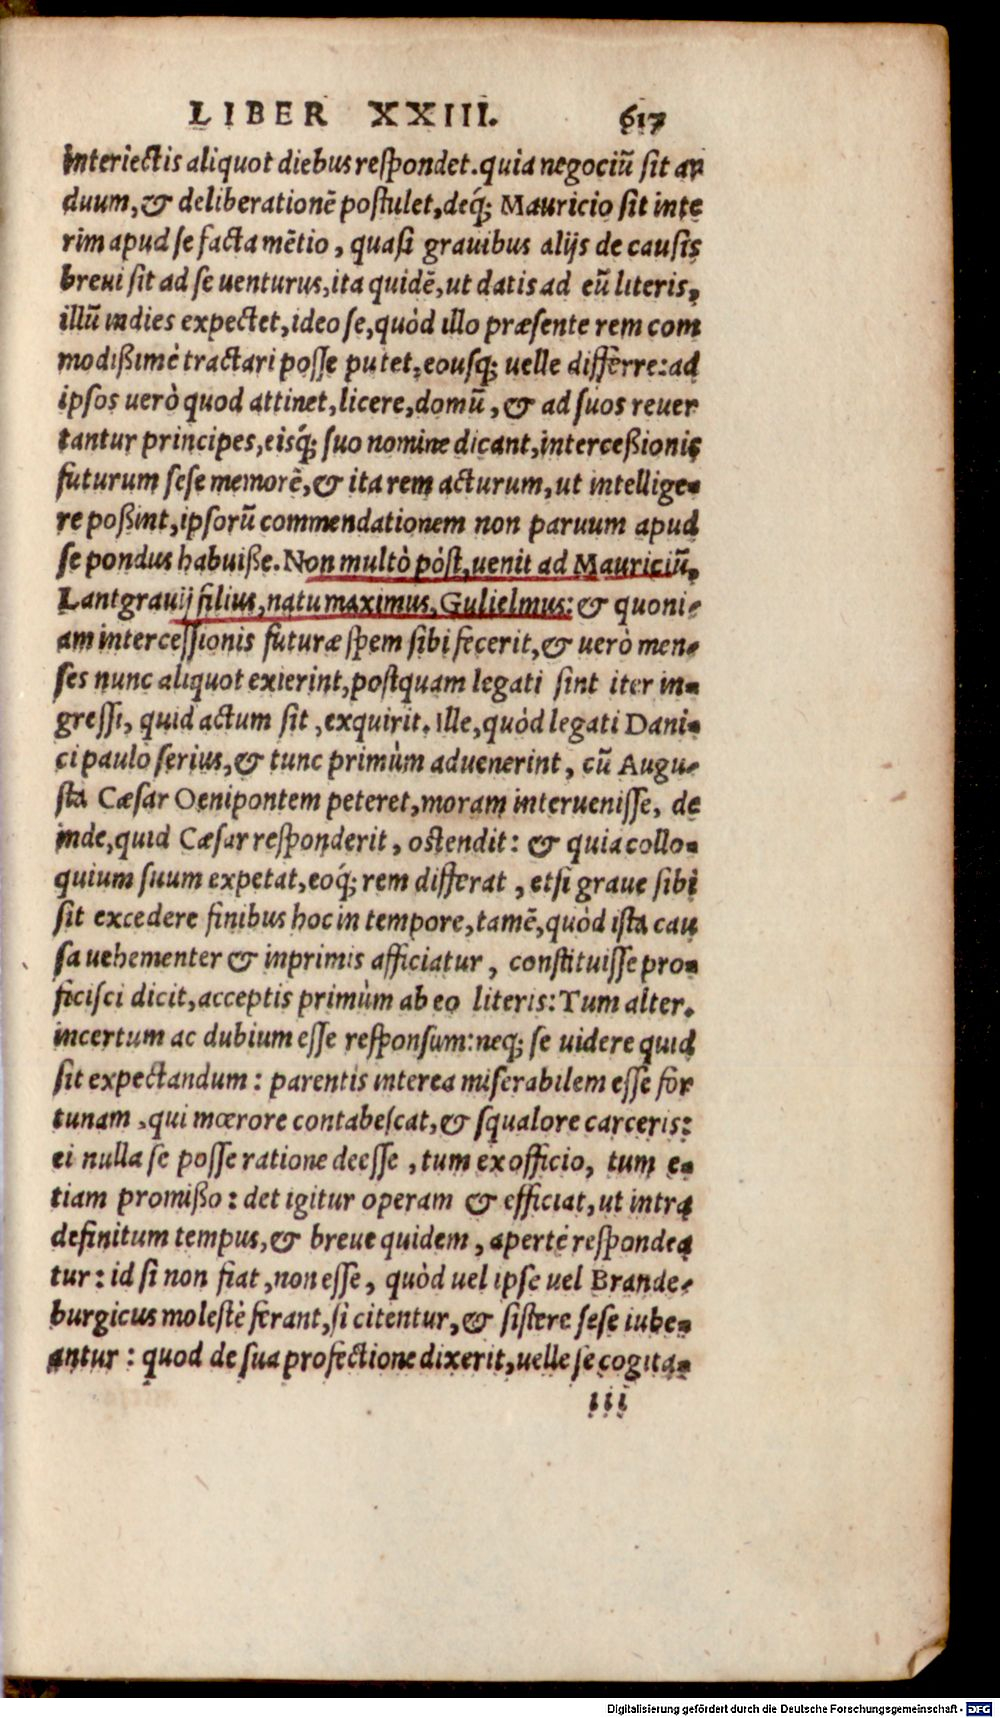 LIBER XXIII. 617
interiectis aliquot diebus respondet. quia negociũ sit ar
duum, & deliberationẽ postulet, deq́; Mauricio sit inte
rim apud se facta mẽtio, quasi grauibus alijs de causis
breui sit ad se uenturus, ita quidẽ, ut datis ad eũ literis,
illũ indies expectet, ideo se, quòd illo præsente rem com
modißimè tractari posse putet, eousq; uelle differre: ad
ipsos uerò quod attinet, licere, domũ, & ad suos reuer
tantur principes, eisq́; suo nomine dicant, interceßionis
futurum sese memorẽ, & ita rem acturum, ut intellige-
re poßint, ipsorũ commendationem non paruum apud
se pondus habuiße. Non multò pòst, uenit ad Mauriciũ,
Lantgrauij filius, natu maximus, Gulielmus: & quoni-
am intercessionis futuræ spem sibi fecerit, & uerò men-
ses nunc aliquot exierint, postquam legati sint iter in-
gressi, quid actum sit, exquirit. Ille, quòd legati Dani-
ci paulo serius, & tunc primùm aduenerint, cũ Augu-
sta Cæsar Oenipontem peteret, moram interuenisse, de
inde, quid Cæsar responderit, ostendit: & quia collo-
quium suum expetat, eoq́; rem differat, etsi graue sibi
sit excedere finibus hoc in tempore, tamẽ, quòd ista cau
sa uehementer & inprimis afficiatur, constituisse pro-
ficisci dicit, acceptis primùm ab eo literis: Tum alter.
incertum ac dubium esse responsum: neq; se uidere quid
sit expectandum: parentis interea miserabilem esse for
tunam, qui mœrore contabescat, & squalore carceris:
ei nulla se posse ratione deesse, tum ex officio, tum e-
tiam promißo: det igitur operam & efficiat, ut intra
definitum tempus, & breue quidem, apertè respondea
tur: id si non fiat, non esse, quòd uel ipse uel Brande-
burgicus molestè ferant, si citentur, & sistere sese iube-
antur: quod de sua profectione dixerit, uelle se cogita-
iii
Digitalisierung gefördert durch die Deutsche Forschungsgemeinschaft - DFG